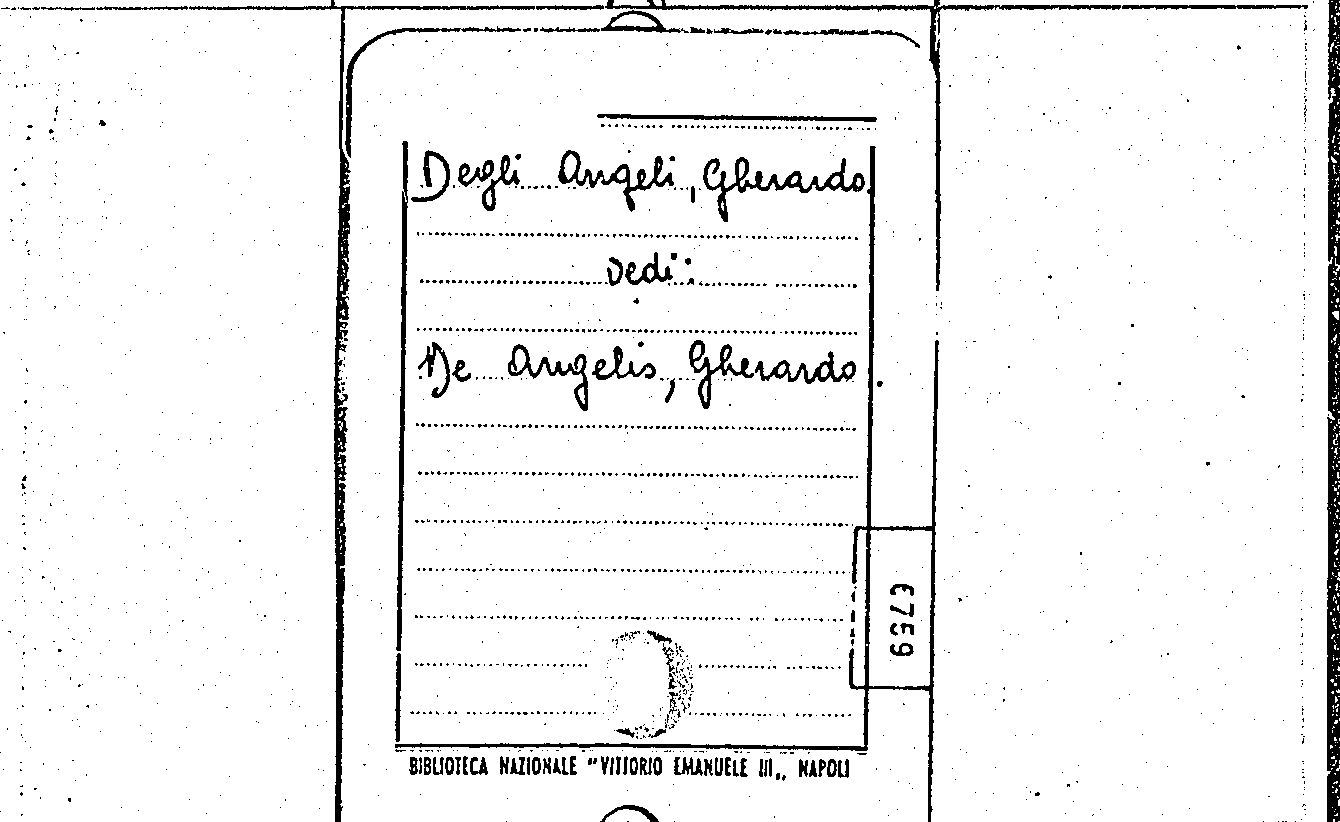 Degli Angeli, Gherardo.
vedi:
De Angelis, Gherardo.
BIBLIOTECA NAZIONALE "VITTORIO EMANUELE III„ NAPOLI